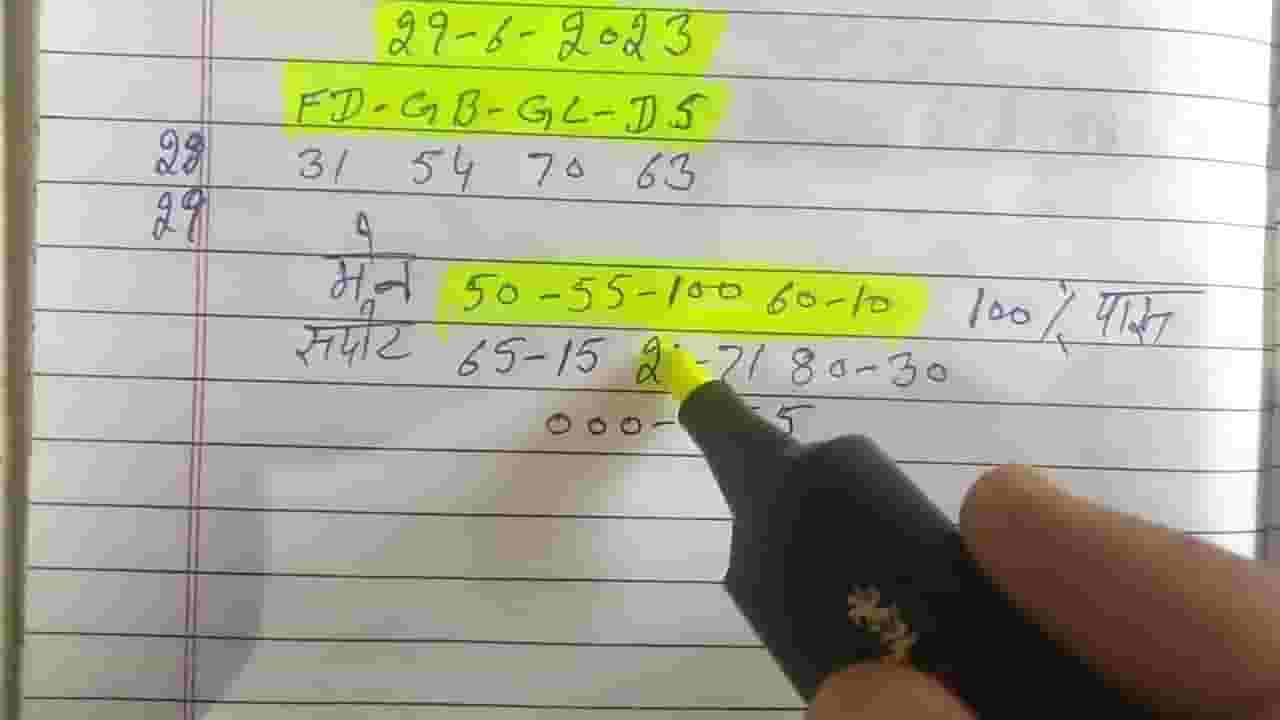 29-6-2023
FD-GB-GL-DS
28 31 54 70 63
29
मेन 50-55-100 60-10 100% पास
सपोट 65-15 2 -71 80-30
000- 55